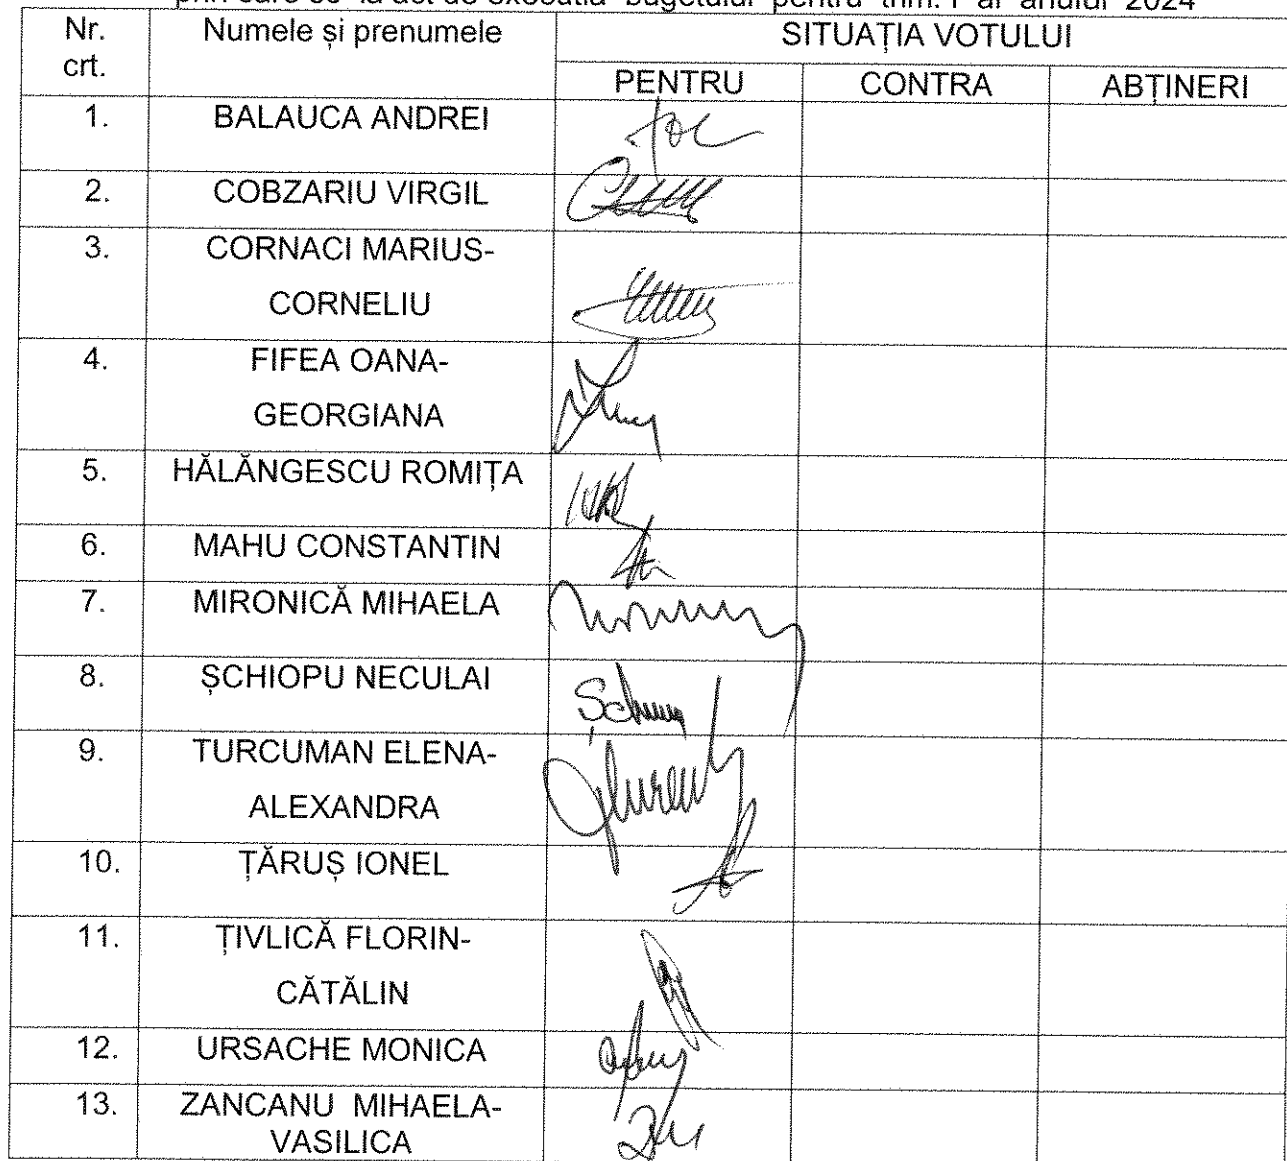 prin care se ia act de execuția bugetului pentru trim. I al anului 2024
Nr. crt. Numele și prenumele SITUAȚIA VOTULUI
PENTRU CONTRA ABȚINERI
1. BALAUCA ANDREI
2. COBZARIU VIRGIL
3. CORNACI MARIUS-
CORNELIU
4. FIFEA OANA-
GEORGIANA
5. HĂLĂNGESCU ROMIȚA
6. MAHU CONSTANTIN
7. MIRONICĂ MIHAELA
8. ȘCHIOPU NECULAI
9. TURCUMAN ELENA-
ALEXANDRA
10. ȚĂRUȘ IONEL
11. ȚIVLICĂ FLORIN-
CĂTĂLIN
12. URSACHE MONICA
13. ZANCANU MIHAELA-
VASILICA